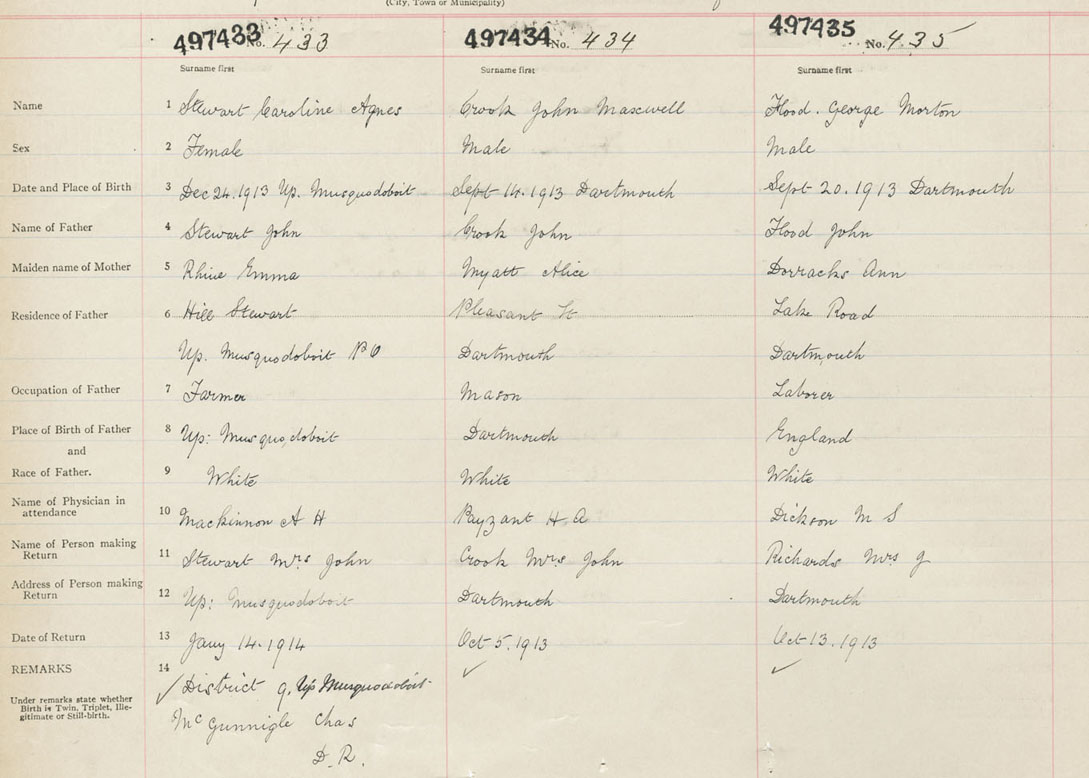 (City, Town or Municipality)
497433 No. 433 497434 No. 434 497435 No. 435
Surname first Surname first Surname first
Name 1 Stewart Caroline Agnes Crook John Maxwell Flood. George Morton
Sex 2 Female Male Male
Date and Place of Birth 3 Dec 24.1913 Up. Musquodoboit Sept 14.1913 Dartmouth Sept 20.1913 Dartmouth
Name of Father 4 Stewart John Crook John Flood John
Maiden name of Mother 5 Rhine Emma Myatt Alice Dorracks Ann
Residence of Father 6 Hill Stewart Pleasant St Lake Road
Up. Musquodoboit P O Dartmouth Dartmouth
Occupation of Father 7 Farmer Mason Laborer
Place of Birth of Father 8 Up: Musquodoboit Dartmouth England
and
Race of Father. 9 White White White
Name of Physician in
attendance 10 MacKinnon A H Payzant H A Dickson M S
Name of Person making
Return 11 Stewart Mrs John Crook Mrs John Richards Mrs J
Address of Person making
Return 12 Up: Musquodoboit Dartmouth Dartmouth
Date of Return 13 Jany 14.1914 Oct 5.1913 Oct 13.1913
REMARKS 14
District 9. Up Musquodoboit
Under remarks state whether
Birth is Twin, Triplet, Ille-
gitimate or Still-birth.
McGunnigle Chas
D.R.